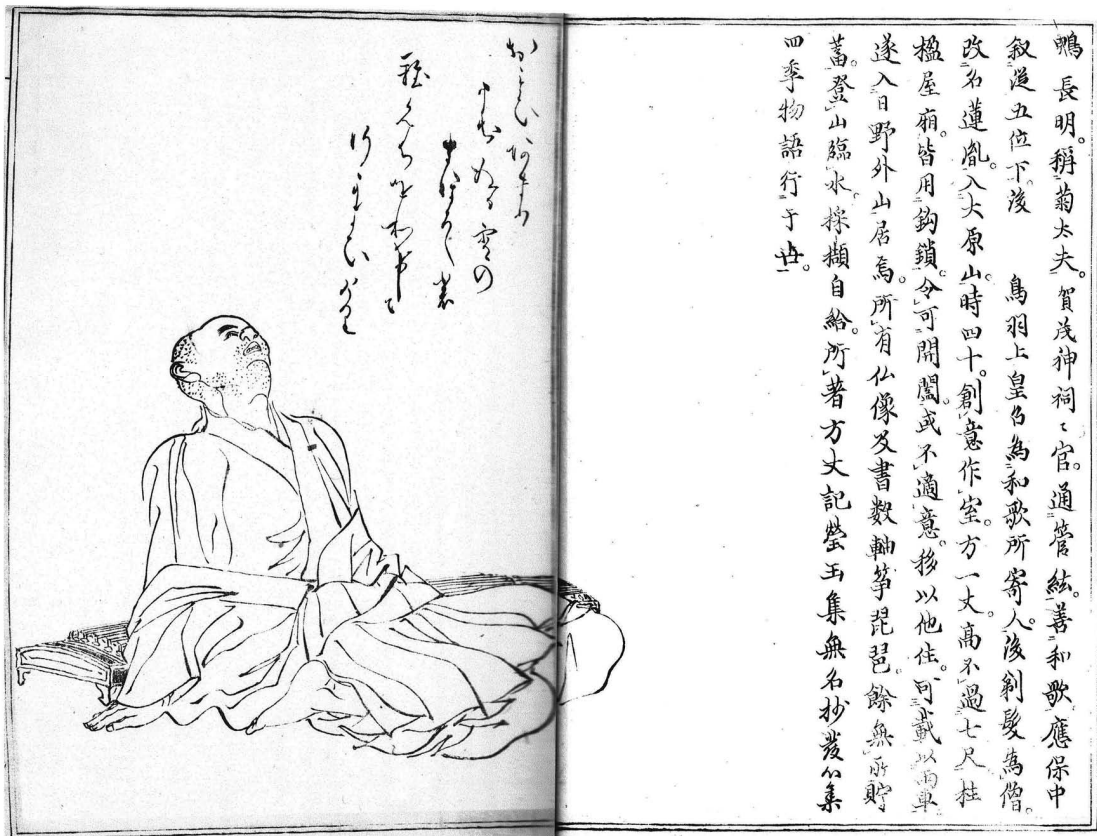 鴨長明。稱菊太夫。賀茂神祠〻官。通管絃。善和歌應保中
叙從五位下。後　鳥羽上皇召為和歌所寄人。後剃髮為僧。
改名蓮胤。入大原山。時四十。創意作室。方一丈。高不過七尺柱
楹屋廂。皆用鈎鎖。令可開闔。或不適意。移以他住。可載以兩車
遂入日野外山居焉。所有仏像及書数軸筝琵琶。餘無所貯
蓄。登山臨水。採擷自給。所著方丈記瑩玉集無名抄發心集
四季物語行于世。
おもひあまり
うちぬる宵の
まぼろしも
浪ちをわけて
行かよひけり